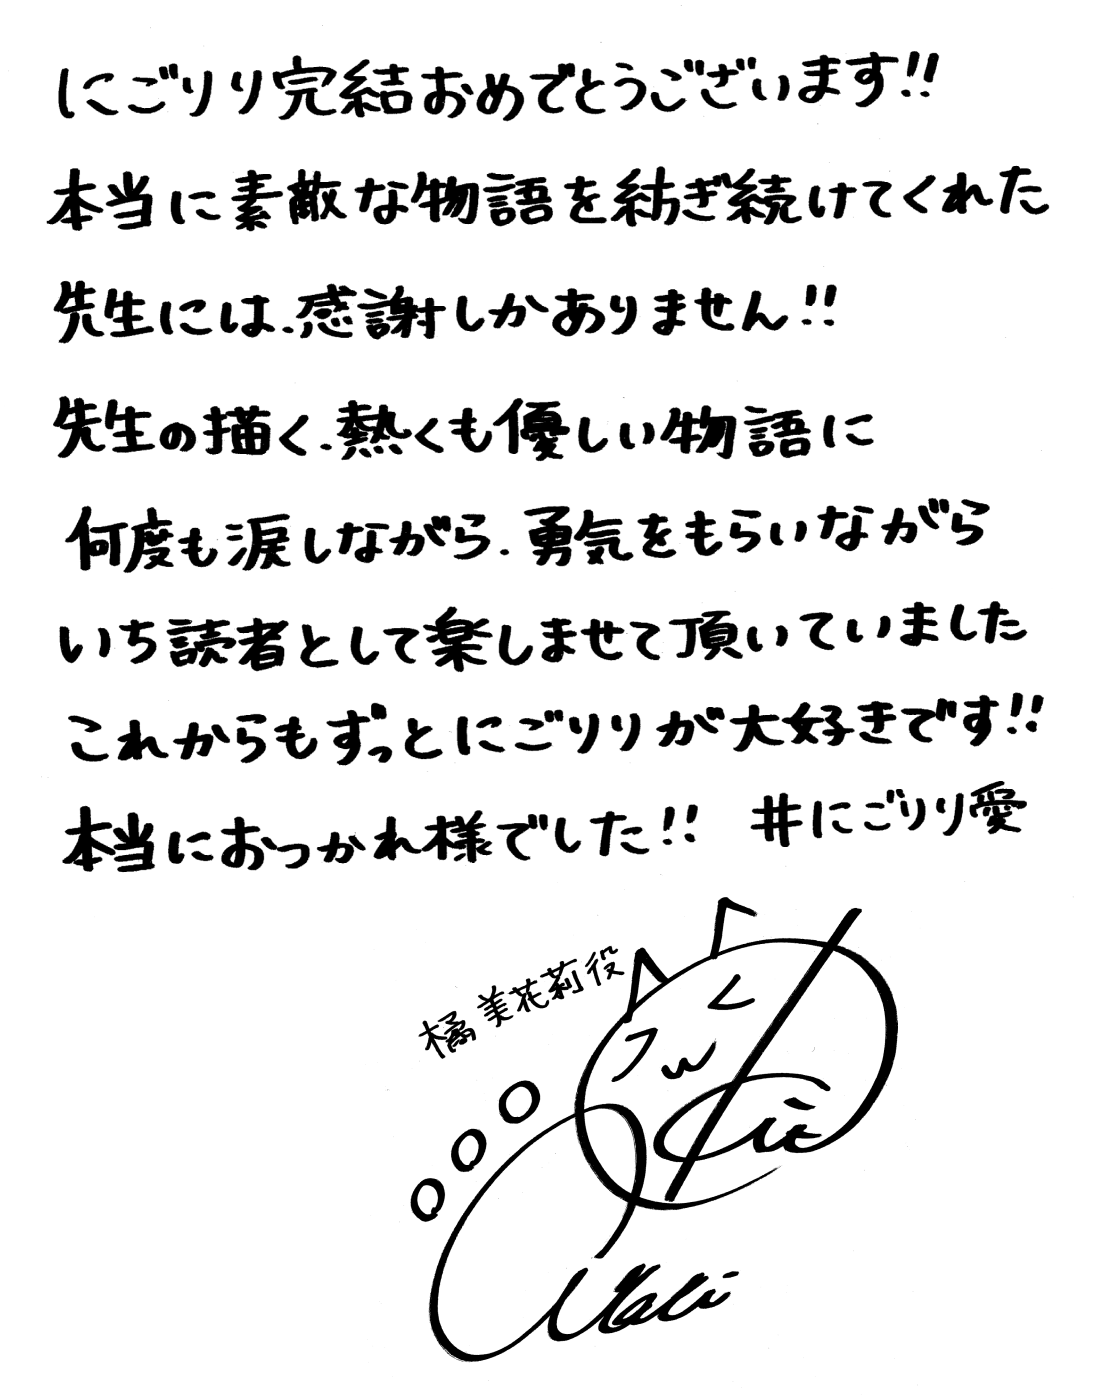 にごりり完結おめでとうございます!!
本当に素敵な物語を紡ぎ続けてくれた
先生には、感謝しかありません!!
先生の描く、熱くも優しい物語に
何度も涙しながら、勇気をもらいながら
いち読者として楽しませて頂いていました
これからもずっとにごりりが大好きです!!
本当におつかれ様でした!! #にごりり愛
橘 美花莉役